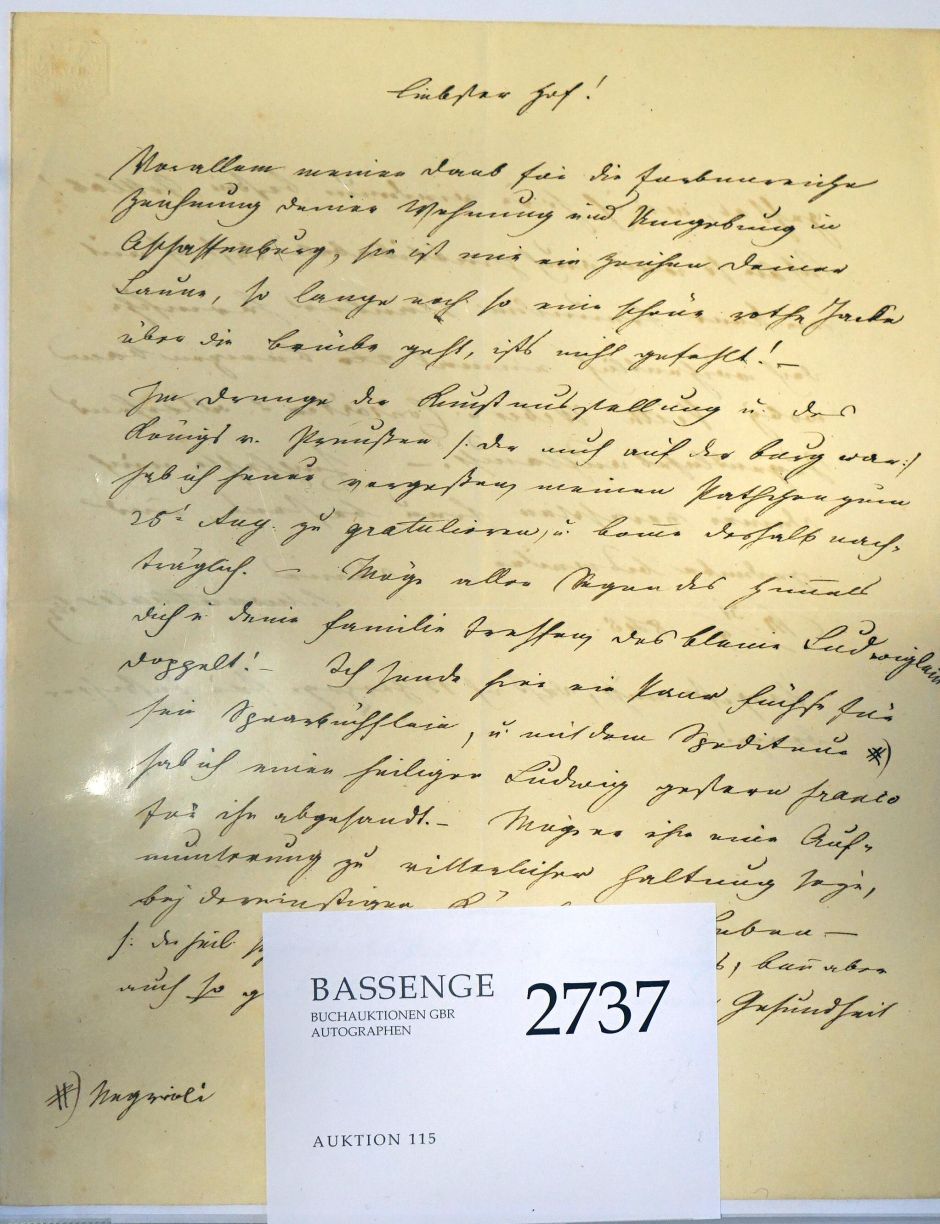 Liebster Hof!
Vorallem meinen Dank für die farbenreiche
Zeichnung deiner Wohnung und Umgebung in
Aschaffenburg, sie ist mir ein Zeichen deiner
Laune, so lange noch so eine schöne rothe Jacke
über die Brücke geht, ists nicht gefehlt! –
Im Drange der Kunstausstellung u. des
Königs v. Preußen /: der auch auf der Burg war :/
hab ich heuer vergeßen, meinen Pathchen zum
25t Aug. zu gratulieren, u. kome deshalb nach-
träglich. – Möge aller Segen des Himels
dich u. deine Familie treffen, des kleine Ludwiglein
doppelt! – Ich sende hier ein Paar Füchse für
sein Sparbüchslein, u. mit dem Spediteur #)
hab ich einen heiligen Ludwig gestern franco
für ihn abgesandt. – Möge er ihm eine Auf-
munterung zu ritterlicher Haltung seye,
bey dereinstigen
/: der heil. haben –
auch so g , kan aber
Gesundheit
#) Negrioli
BASSENGE
BUCHAUKTIONEN GBR
AUTOGRAPHEN
2737
AUKTION 115